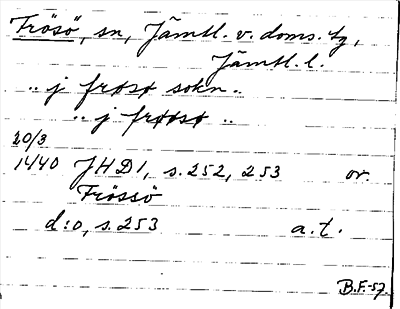 Frösö, sn, Jämtl. v. doms. tg,
Jämtl. l.
.. j frøsø sokn ..
.. j frøøsø ..
20/3
1440 JHD 1, s. 252, 253 or.
Frössö
d:o, s. 253 a. t.
B.F.-57.